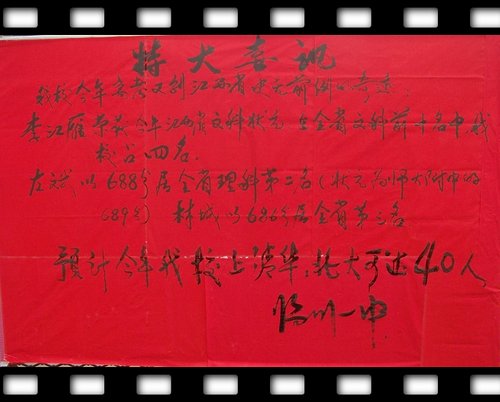 特大喜讯
我校今年高考又创江西省史无前例的奇迹:
李江雁荣获今年江西省文科状元且全省文科前十名中我
校占四名.
左斌以688分居全省理科第二名(状元为师大附中的
689分) 林城以686分居全省第三名
预计今年我校上清华、北大可达40人
临川一中